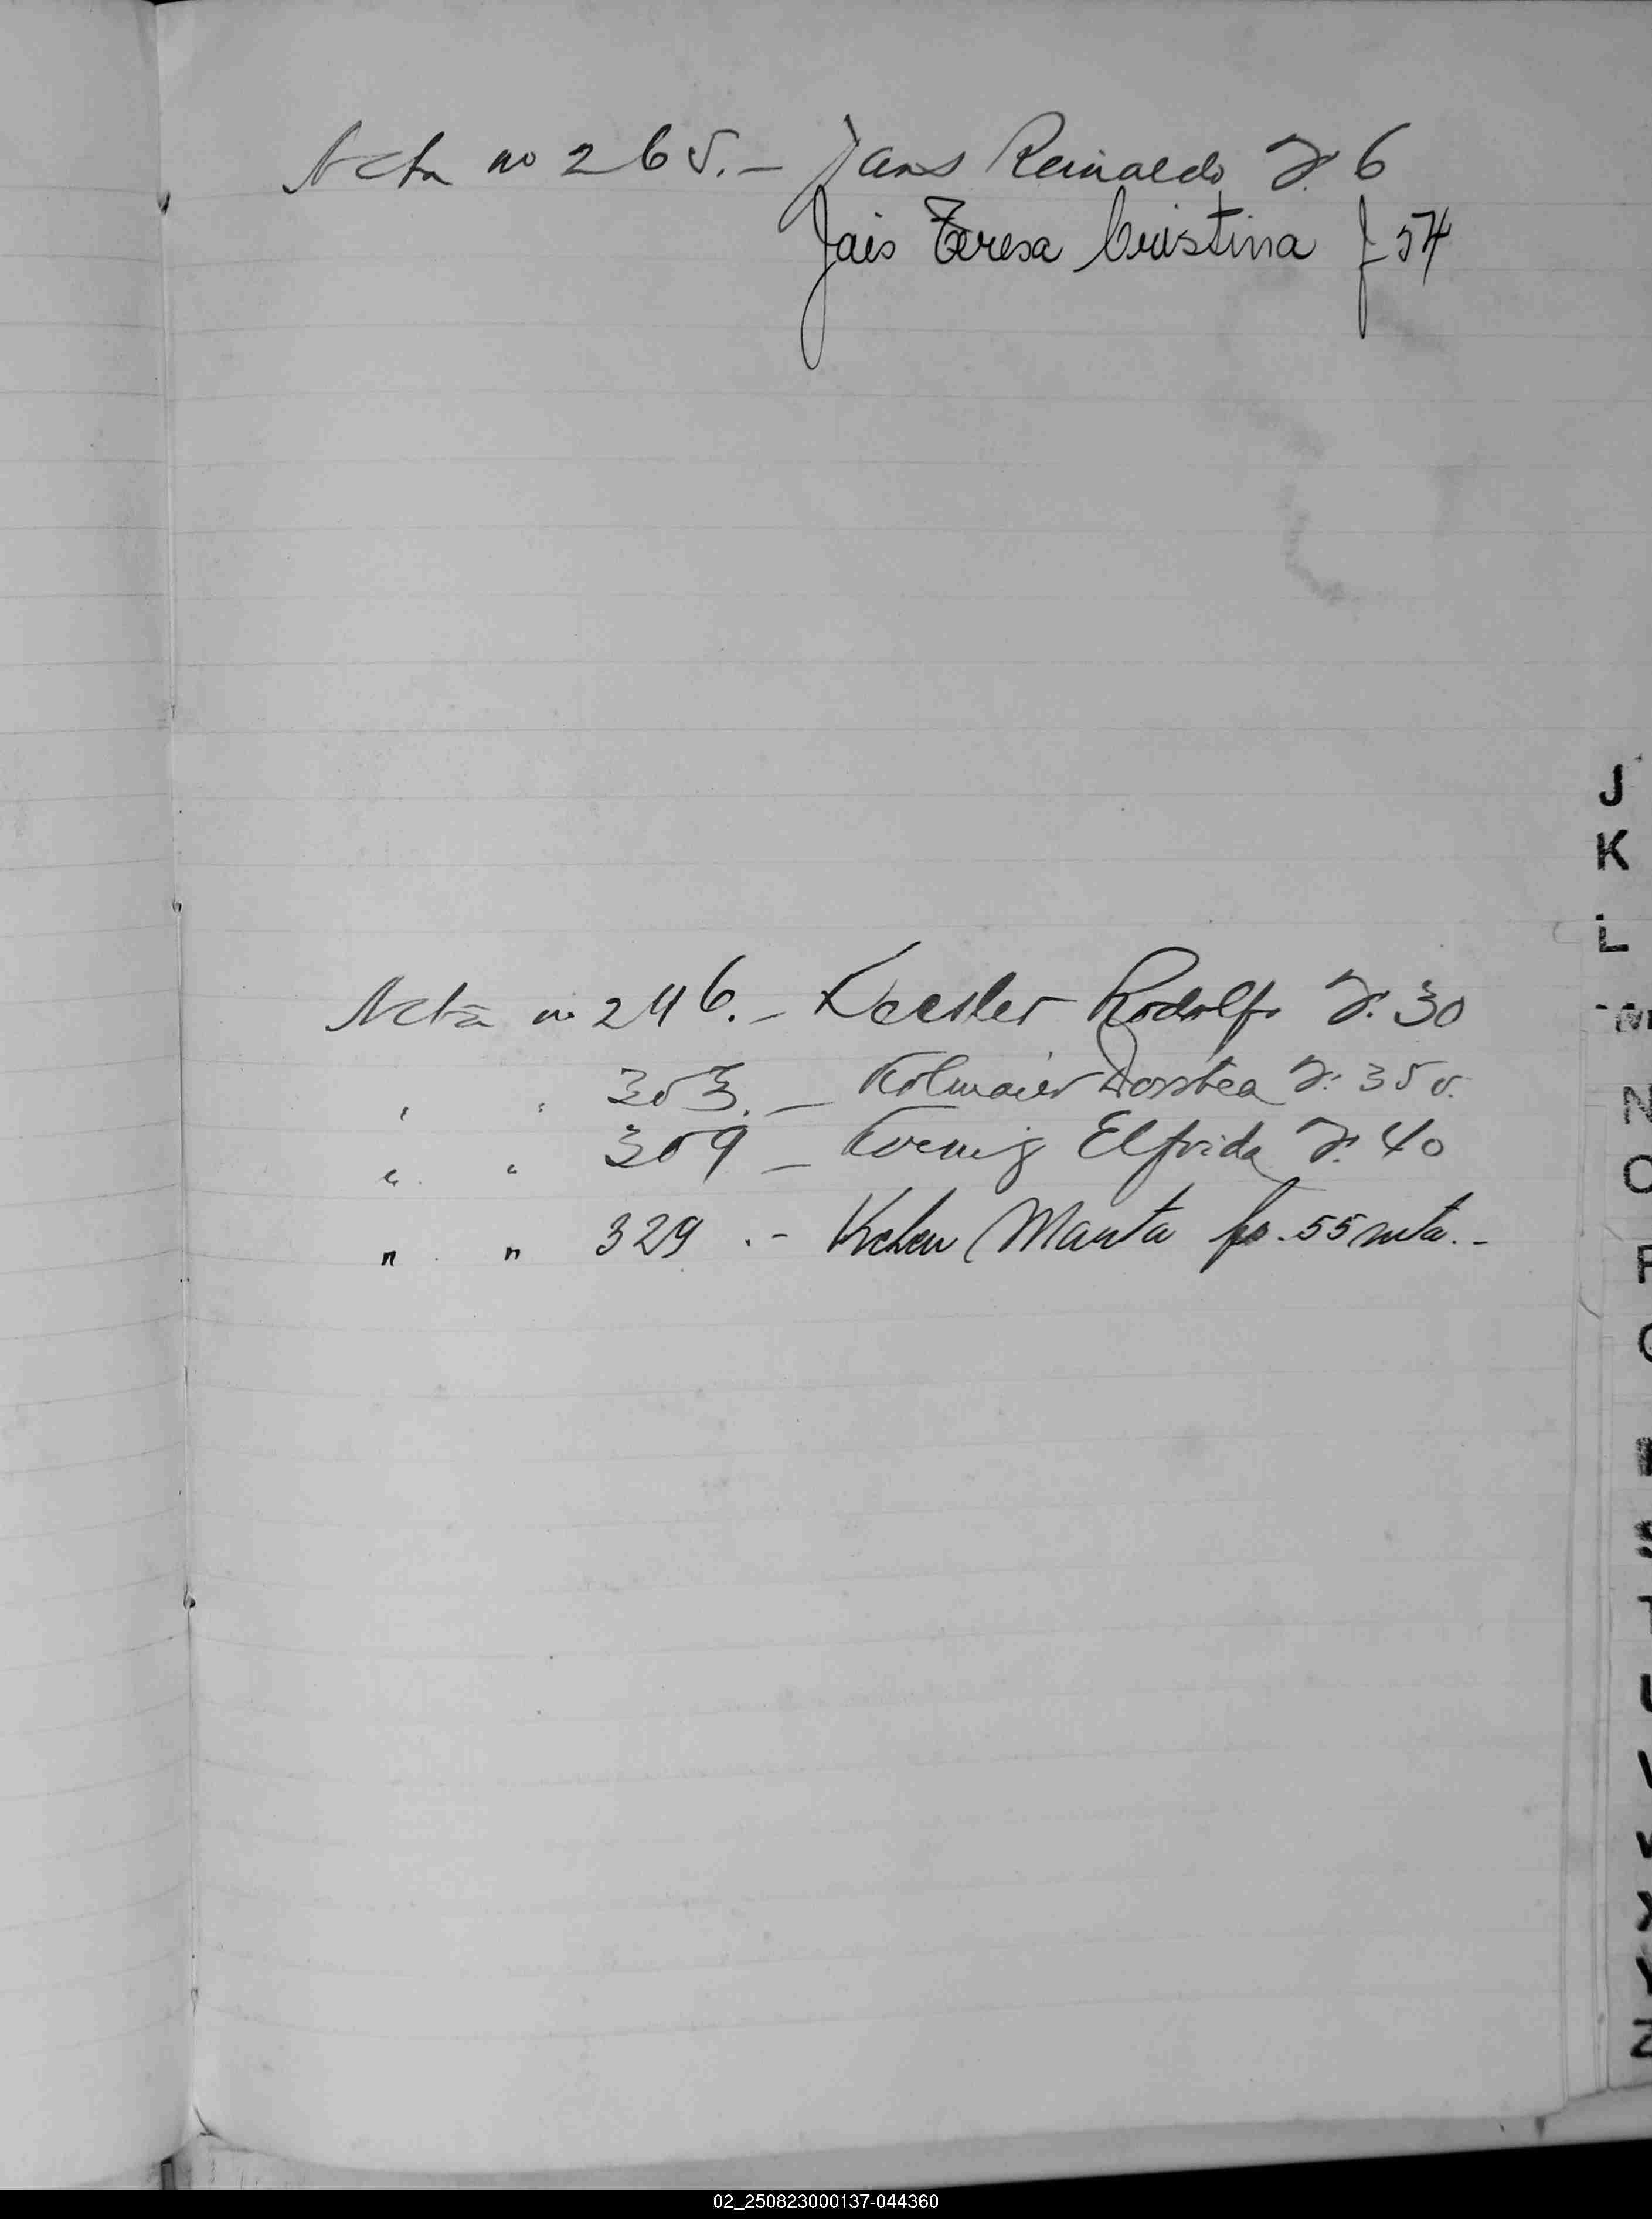 Acta no 265.- Jans Reinaldo F. 6
Jais Teresa Cristina f 54
Acta no 246.- Kessler Rodolfo F. 30
" " 303.- Kolmaier Dorotea F. 35 v.
" " 309 - Koenig Elfrida F. 40
" " 329 .- Marta fo. 55 vta.-
J
K
L
M
N
O
P
Q
R
S
T
U
V
X
Y
Z
02_250823000137-044360